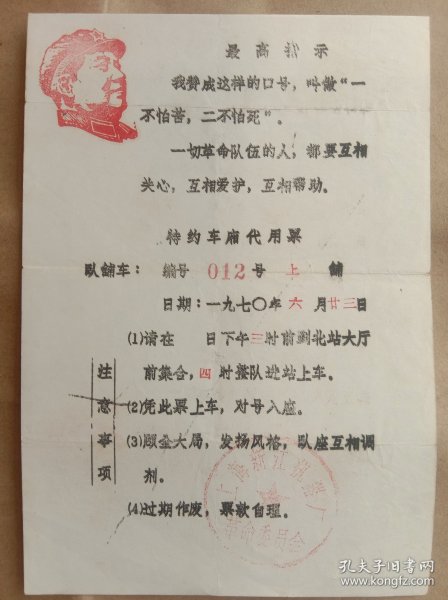 最高指示
我赞成这样的口号，叫做“一
不怕苦，二不怕死”。
一切革命队伍的人，都要互相
关心，互相爱护，互相帮助。
特约车厢代用票
卧铺车： 编号 012 号 上 铺
日期：一九七〇年 六 月 廿三 日
注意事项
(1)请在 日下午三时前到北站大厅
前集合，四时整队进站上车。
(2)凭此票上车，对号入座。
(3)顾全大局，发扬风格，卧座互相调
剂。
(4)过期作废，票款自理。
孔夫子旧书网